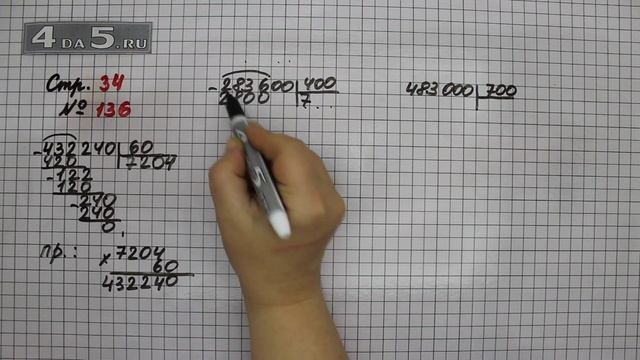 4 ДА 5.RU
Стр. 34
№ 136
-432240 | 60
420 | 7204
-122
120
-240
240
0
пр.: × 7204
60
432240
-283600 | 400
2800 | 7...
483000 | 700